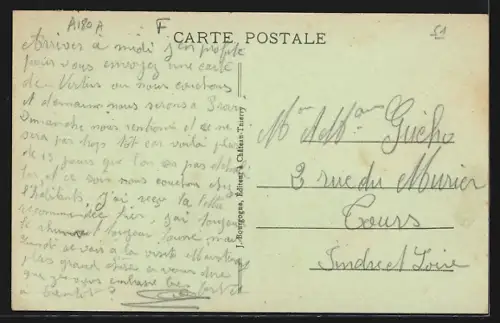 A180A
F
51
CARTE POSTALE
Arriver à midi j'en profite
pour vous envoyez une carte
de Vertus ou nous couchons
et demain nous serons a
Dimanche nous rentrons et ce ne
sera pas trop tôt car voila plus
de 15 jours que l'on a pas
et ce soir nous couchons chez
l'habitants, j'ai reçu la lettre
recommandée hier, j'ai toujours
le toujours mais
je vais a la visite
plus grand chose a vous dire
que je vous embrasse bien fort et
a bientot
J. Bourgogne, Éditeur à Château-Thierry
Mr et Mme Guého
2 rue du Murier
Tours
Indre et Loire